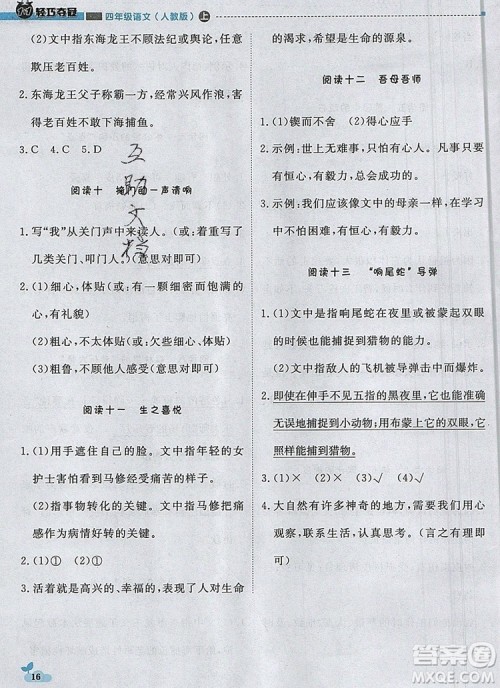 轻巧夺冠
四年级语文（人教版）上
(2)文中指东海龙王不顾法纪与舆论，任意
欺压老百姓。
2.东海龙王父子称霸一方，经常兴风作浪，
害得老百姓不敢下海捕鱼。
3.C 4.C 5.D
阅读十 掩 动一声清响
1.写“我”从关门声中来读人。(或：着重写了
几类关门、叩门人。)(意思对即可)
2.(1)细心，体贴(或：有一颗细密而饱满的
心，有礼貌)
(2)粗心，不太体贴(或：欠些细心、体贴)
(3)粗鲁，不顾他人感受(意思对即可)
阅读十一 生之喜悦
1.(1)用手遮住自己的脸。文中指年轻的女
护士害怕看到马修经受痛苦的样子。
(2)指事物转化的关键。文中指马修痛感
作为病情好转的关键。
2.(1)① (2)①
3.活着就是高兴的、幸福的，表现了人对生命
的渴求、希望是生命的源泉。
阅读十二 吾母吾师
1.(1)锲而不舍 (2)得心应手
2.示例：世上无难事，只怕有心人。凡事只要
有信心、有恒心，有不达目的不罢休的毅
力，总会成功的。
3.示例：我们应该像文中的母亲一样，在学习
中不怕困难，有恒心，有毅力。
阅读十三 “响尾蛇”导弹
1.(1)文中指响尾蛇在夜里或被蒙上双眼
的时候也能捕捉到猎物的能力。
(2)文中指敌人的飞机被导弹击中爆炸。
2.即使在伸手不见五指的黑夜里，它也能准确
无误地捕捉到小动物；用布蒙上它的双眼，它
照样能捕捉到猎物。
3.(1)× (2)× (3)√ (4)×
4.大自然有许多神奇的地方，我们要用心
观察，联系生活，认真思考。(言之有理
即可)
互
助
文
档
16
作业帮